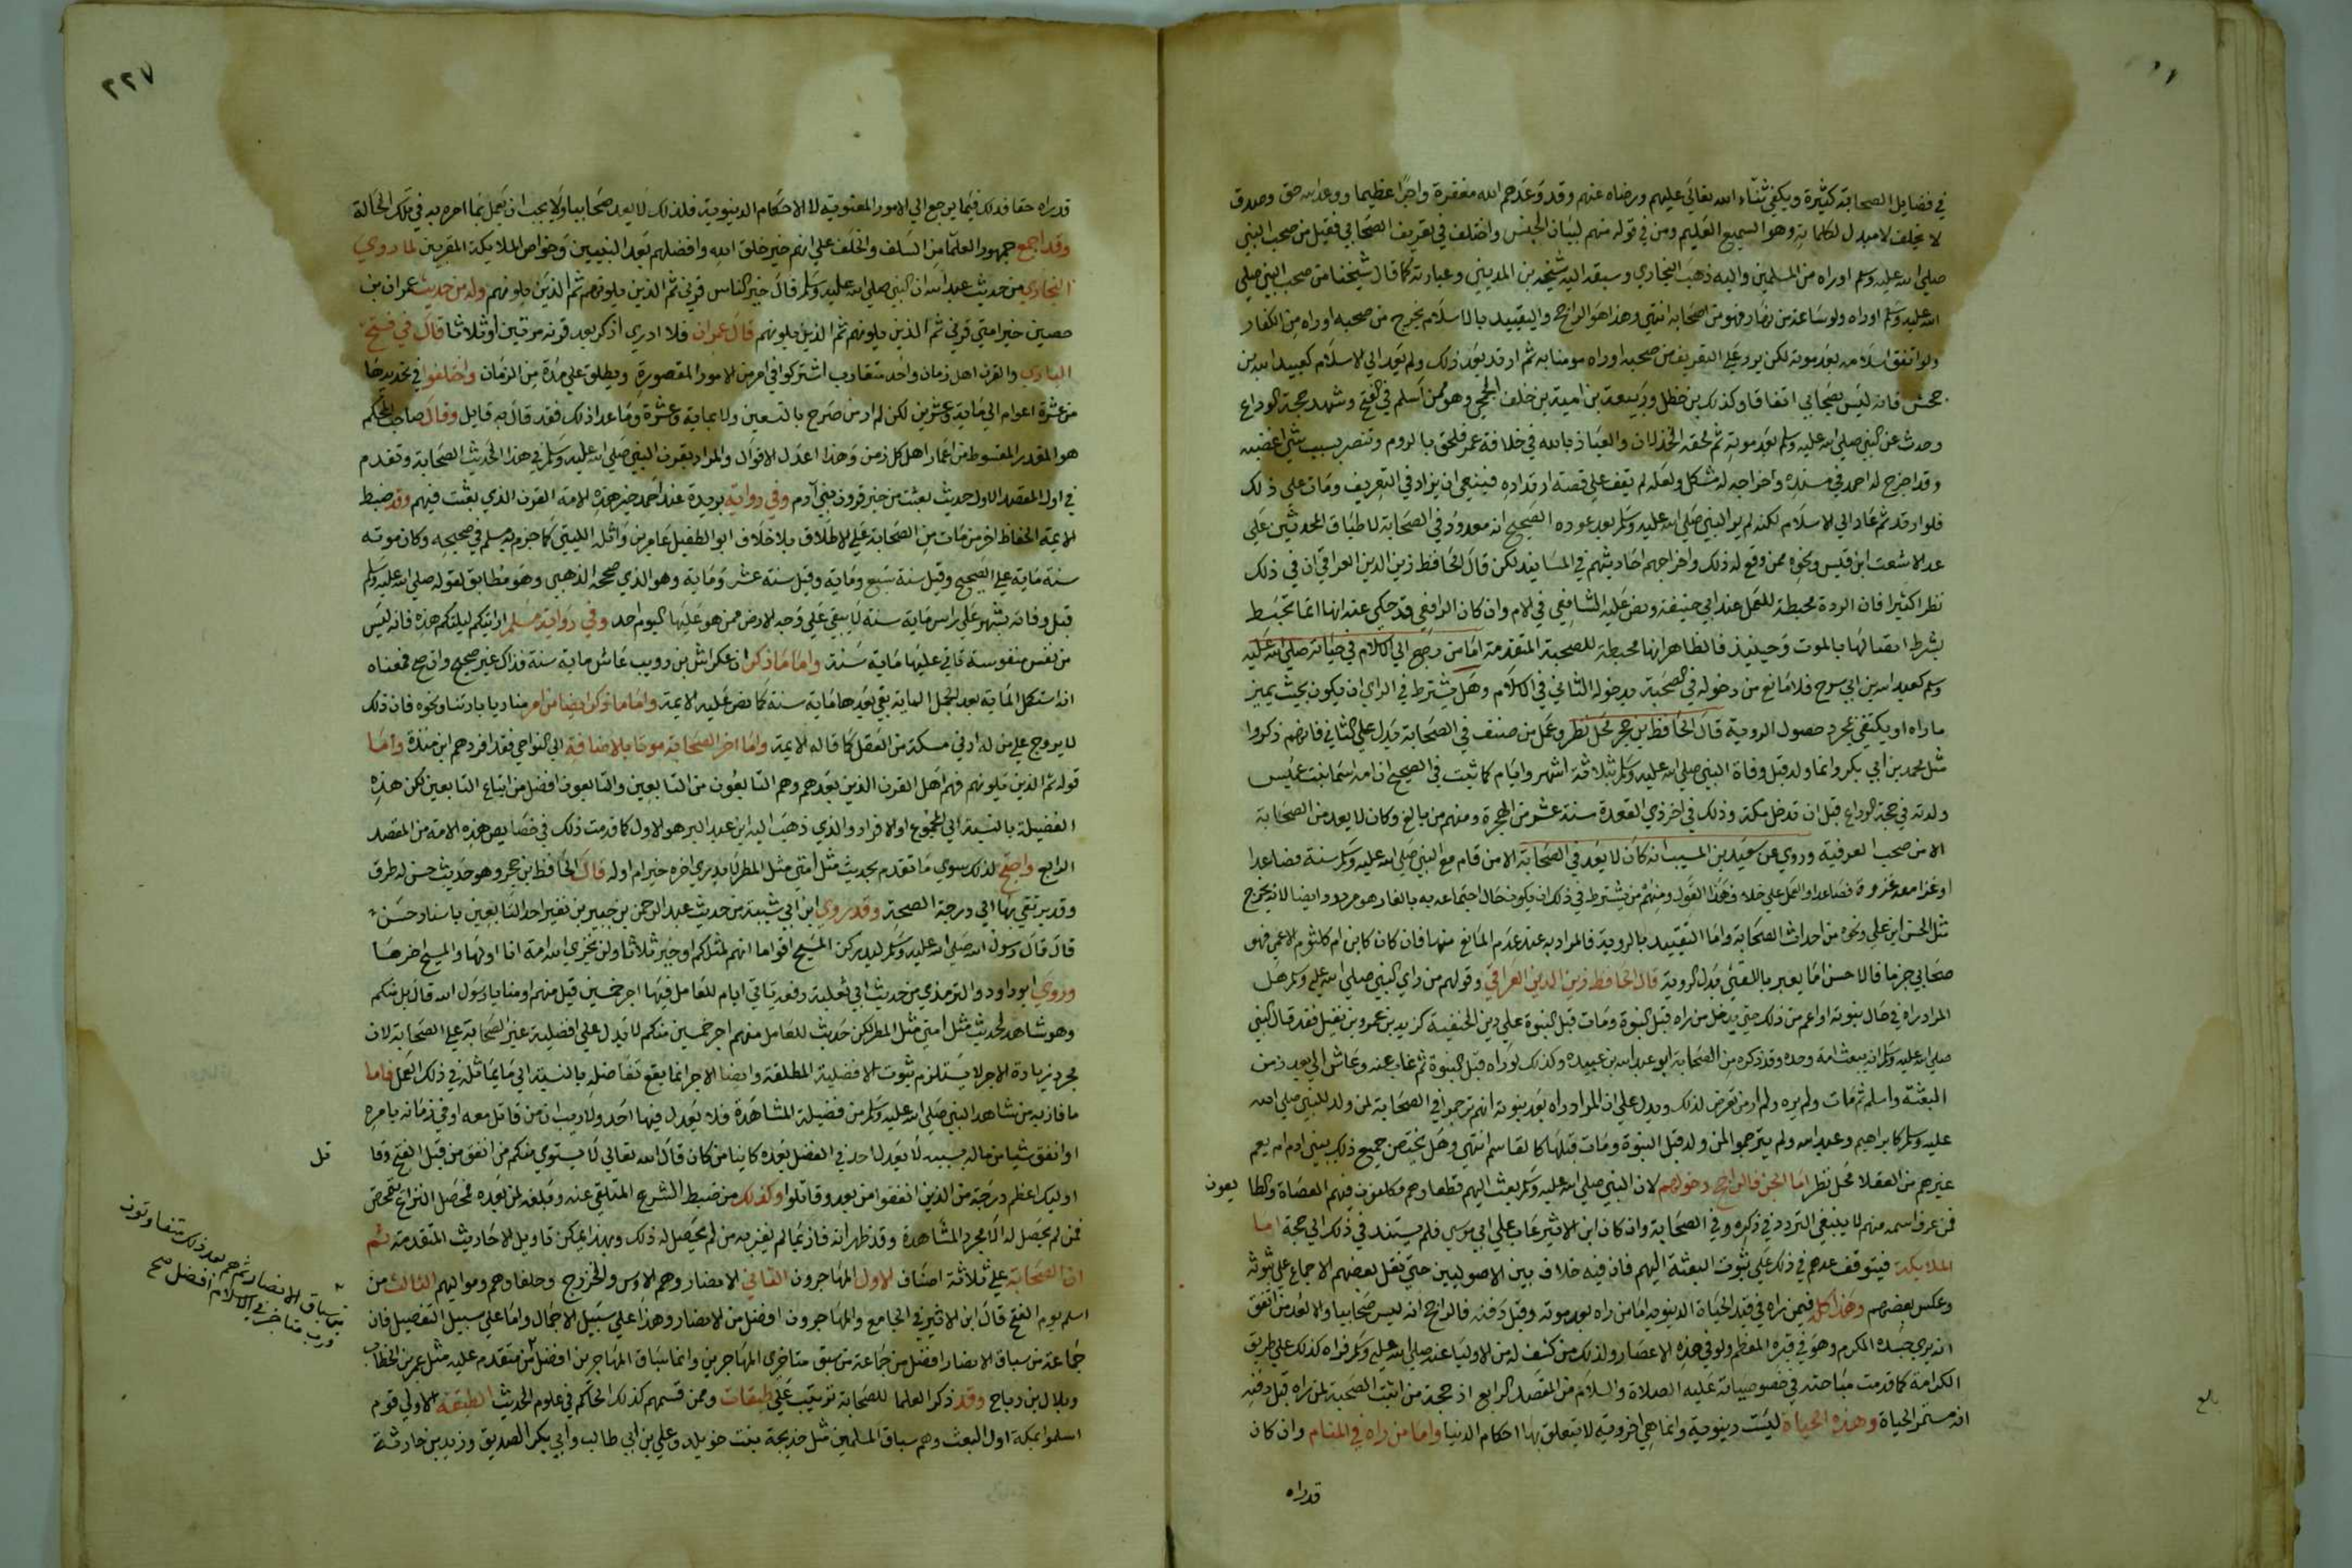 في فضايل الصحابة كثيرة ويكفي ثناء الله تعالى عليهم ورضاه عنهم وقد وعدهم الله مغفرة واجرا عظيما ووعد الله حق وصدق
لا يخلف لا مبدل لكلماته وهو السميع العليم ومن في قوله منهم لبيان الجنس واختلف في تعريف الصحابي فقيل من صحب النبي
صلى الله عليه وسلم او راه من المسلمين واليه ذهب البخاري وسبقه اليه شيخه بن المديني وعبارته كما قال شيخنا من صحب النبي صلى
الله عليه وسلم او راه ولو ساعة من نهار فهو من اصحابه انتهى وهذا هو الراجح والتقييد بالاسلام يخرج من صحبه او راه من الكفار
ولو اتفق اسلامه بعد موته لكن يرد على التعريف من صحبه او راه مومنا به ثم ارتد بعد ذلك ولم يعد الى الاسلام كعبيد الله بن
جحش فانه ليس بصحابي اتفاقا وكذلك بن خطل وربيعة بن امية بن خلف الجمحي وهو ممن اسلم في الفتح وشهد حجة الوداع
وحدث عن النبي صلى الله عليه وسلم بعد موته ثم لحقه الخذلان والعياذ بالله في خلافة عمر فلحق بالروم وتنصر بسبب شي اغضبه
وقد اخرج له احمد في مسنده واخراجه له مشكل ولعله لم يقف على قصة ارتداده فينبغي ان يزاد في التعريف ومات على ذلك
فلو ارتد ثم عاد الى الاسلام لكنه لم ير النبي صلى الله عليه وسلم بعد عوده الصحيح انه معدود في الصحابة لاطباق المحدثين على
عد الاشعث ابن قيس ونحوه ممن وقع له ذلك واخراجهم احاديثهم في المسانيد لكن قال الحافظ زين الدين العراقي ان في ذلك
نظرا كثيرا فان الردة محبطة للعمل عند ابي حنيفة ونص عليه الشافعي في الام وان كان الرافعي قد حكى عنه انها انما تحبط
بشرط اتصالها بالموت وحينيذ فالظاهر انها محبطة للصحبة المتقدمة اما من رجع الى الاسلام في حياته صلى الله عليه
وسلم كعبد الله بن ابي سرح فلا مانع من دخوله في الصحبة بدخوله الثاني في الاسلام وهل يشترط في الراي ان يكون بحيث يميز
ما راه او يكتفي بمجرد حصول الروية قال الحافظ بن حجر محل نظر وعمل من صنف في الصحابة يدل على الثاني فانهم ذكروا
مثل محمد بن ابي بكر وانما ولد قبل وفاة النبي صلى الله عليه وسلم بثلاثة اشهر وايام كما ثبت في الصحيح ان امه اسما بنت عميس
ولدته في حجة الوداع قبل ان تدخل مكة وذلك في اخر ذي القعدة سنة عشر من الهجرة ومنهم من بالغ وكان لا يعد من الصحابة
الا من صحب العرفية وروي عن سعيد بن المسيب انه كان لا يعد في الصحابة الا من قام مع النبي صلى الله عليه وسلم سنة فصاعدا
او غزا معه غزوة فصاعدا والعمل على خلاف هذا القول ومنهم من يشترط في ذلك ان يكون حال اجتماعه به بالغا وهو مردود ايضا لانه يخرج
مثل الحسن ابن علي ونحوه من احداث الصحابة واما التقييد بالروية فالمراد به عند عدم المانع منها فان كان كابن ام مكتوم الاعمى فهو
صحابي جزما فالاحسن ان يعبر باللقي بدل الروية قال الحافظ زين الدين العراقي وقولهم من راى النبي صلى الله عليه وسلم هل
المراد راه في حال نبوته او اعم من ذلك حتى يدخل من راه قبل النبوة ومات قبل النبوة على دين الحنيفية كزيد بن عمرو بن نفيل فقد قال النبي
صلى الله عليه وسلم انه يبعث امة وحده وقد ذكره من الصحابة ابو عبد الله بن عبيده وكذلك لو راه قبل النبوة ثم غاب عنه وعاش الى بعد زمن
البعثة واسلم ثم مات ولم يره ولم ار من تعرض لذلك ويدل على ان المراد راه بعد نبوته انهم ترجموا في الصحابة لمن ولد للنبي صلى الله
عليه وسلم كابراهيم وعبد الله ولم يترجموا لمن ولد قبل النبوة ومات قبلها كالقاسم انتهى وهل يختص جميع ذلك ببني ادم ام يعم
غيرهم من العقلا محل نظر اما الجن فالراجح دخولهم لان النبي صلى الله عليه وسلم بعث اليهم قطعا وهم مكلفون فيهم العصاة والطا يعون
فمن عرف اسمه منهم لا ينبغي التردد في ذكره في الصحابة وان كان ابن الاثير عاب على ابي موسى فلم يستند في ذلك الى حجة اما
الملايكة فيتوقف عدهم في ذلك على ثبوت البعثة اليهم فان فيه خلاف بين الاصوليين حتى نقل بعضهم الاجماع على ثبوته
وعكس بعضهم وهذا كله فيمن راه في قيد الحياة الدنيوية اما من راه بعد موته وقبل دفنه فالراجح انه ليس صحابيا والا لعد من اتفق
انه يرى جسده المكرم وهو في قبره المعظم ولو في هذه الاعصار وكذلك من كشف له من الاوليا عنه صلى الله عليه وسلم فراه كذلك على طريق
الكرامة كما قدمت مباحثه في خصوصياته عليه الصلاة والسلام من المقصد الرابع اذ حجة من اثبت الصحبة لمن راه قبل دفنه
انه مستمر الحياة وهذه الحياة ليست دنيوية وانما هي اخروية لا يتعلق بها احكام الدنيا واما من راه في المنام وان كان
قد راه
٢٢٧
قد راه حقا فذلك فيما يرجع الى الامور المعنوية لا الاحكام الدنيوية فلذلك لا يعد صحابيا ولا يجب ان يعمل بما امره به في تلك الحالة
وقد اجمع جمهور العلما من السلف والخلف على انهم خير خلق الله وافضلهم بعد النبيين وخواص الملايكة المقربين لما روى
البخاري من حديث عبد الله ان النبي صلى الله عليه وسلم قال خير الناس قرني ثم الذين يلونهم ثم الذين يلونهم وله من حديث عمران بن
حصين خير امتي قرني ثم الذين يلونهم ثم الذين يلونهم قال عمران فلا ادري اذكر بعد قرنه مرتين او ثلاثا قال في فتح
الباري والقرن اهل زمان واحد متقارب اشتركوا في امر من الامور المقصورة ويطلق على مدة من الزمان واختلفوا في تحديدها
من عشرة اعوام الى ماية وعشرين لكن لم ار من صرح بالتسعين ولا بماية وعشرة وما عدا ذلك فقد قال به قايل وقال صاحب المحكم
هو القدر المتوسط من اعمار اهل كل زمن وهذا اعدل الاقوال والمراد بقرن النبي صلى الله عليه وسلم في هذا الحديث الصحابة وتقدم
في اول المقصد الاول حديث بعثت من خير قرون بني آدم وفي رواية بريدة عند احمد خير هذه الامة القرن الذي بعثت فيهم وقد ضبط
الايمة الحفاظ اخر من مات من الصحابة على الاطلاق بلا خلاف ابو الطفيل عامر بن واثله الليثي كما جزم به مسلم في صحيحه وكان موته
سنة ماية على الصحيح وقيل سنة سبع وماية وقيل سنة عشر وماية وهو الذي صححه الذهبي وهو مطابق لقوله صلى الله عليه وسلم
قبل وفاته بشهر على راس ماية سنة لا يبقى على وجه الارض ممن هو عليها اليوم احد وفي رواية مسلم ارايتكم ليلتكم هذه فانه ليس
من نفس منفوسة ياتي عليها ماية سنة واما ما ذكر ان عكراش بن ذويب عاش ماية سنة فذاك غير صحيح وان صح فمعناه
انه استكمل الماية بعد الجمل لا انه بقي بعدها ماية سنة كما نص عليه الايمة واما ما ذكر ايضا من امر مناد يا بارتنا ونحوه فان ذلك
لا يروج على من له ادنى مسكة من العقل كما قاله الايمة واما اخر الصحابة موتا بالاضافة الى النواحي فقد افردهم ابن مندة واما
قوله ثم الذين يلونهم فهم اهل القرن الذين بعدهم وهم التابعون من التابعين والتابعون افضل من اتباع التابعين لكن هذه
الفضيلة بالنسبة الى المجموع او الافراد والذي ذهب اليه ابن عبد البر هو الاول كما قدمت ذلك في خصايص هذه الامة من المقصد
الرابع واحتج لذلك سوى ما تقدم بحديث مثل امتي مثل المطر لا يدري اخره خير ام اوله قال الحافظ بن حجر وهو حديث حسن له طرق
وقد يرتقي بها الى درجة الصحة وقد روى ابن ابي شيبة من حديث عبد الرحمن بن جبير بن نفير احد التابعين باسناد حسن
قال قال رسول الله صلى الله عليه وسلم ليدركن المسيح اقواما انهم لمثلكم او خير ثلاثا ولن يخزي الله امة انا اولها والمسيح اخرها
وروى ابو داود والترمذي من حديث ابي ثعلبة رفعه تاتي ايام للعامل فيها اجر خمسين قيل منهم او منا يا رسول الله قال بل منكم
وهو شاهد لحديث مثل امتي مثل المطر لكن حديث للعامل منهم اجر خمسين منكم لا يدل على افضلية غير الصحابة على الصحابة لان
مجرد زيادة الاجر لا يستلزم ثبوت الافضلية المطلقة وايضا الاجر انما يقع تفاضله بالنسبة الى ما يماثله في ذلك العمل فاما
ما فاز به من شاهد النبي صلى الله عليه وسلم من فضيلة المشاهدة فلا يعدل فيها احد ولا ريب ان من قاتل معه او في زمانه بامره
او انفق شيا من ماله بسببه لا يعدله احد في الفضل بعده كاينا من كان قال الله تعالى لا يستوي منكم من انفق من قبل الفتح وقا تل
اوليك اعظم درجة من الذين انفقوا من بعد وقاتلوا وكذلك من ضبط الشرع المتلقى عنه وبلغه لمن بعده فحصل النزاع يتمحض
فمن لم يحصل له الا مجرد المشاهدة وقد ظهر انه فاز بما لم يفز به من لم يحصل له ذلك وبهذا يمكن تاويل الاحاديث المتقدمة ثم
ان الصحابة على ثلاثة اصناف الاول المهاجرون الثاني الانصار وهم الاوس والخزرج وحلفاوهم ومواليهم الثالث من
اسلم يوم الفتح قال ابن الاثير في الجامع والمهاجرون افضل من الانصار وهذا على سبيل الاجمال واما على سبيل التفصيل فان
جماعة من سباق الانصار افضل من جماعة من سبق متاخري المهاجرين وانما سباق المهاجرين افضل من متقدم عليه مثل عمر بن الخطاب
وبلال بن رباح وقد ذكر العلما للصحابة ترتيب على طبقات وممن قسمهم كذلك الحاكم في علوم الحديث الطبقة الاولى قوم
اسلموا بمكة اول البعث وهم سباق المسلمين مثل خديجة بنت خويلد وعلي بن ابي طالب وابي بكر الصديق وزيد بن حارثة
سباق الانصار ثم هم بعد ذلك متفاوتون
ورب متاخر في الاسلام افضل صح